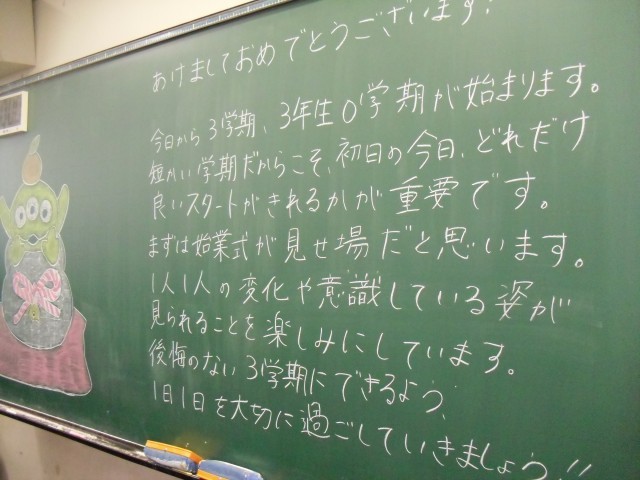 あけましておめでとうございます!
今日から3学期、3年生0学期が始まります。
短かい学期だからこそ、初日の今日、どれだけ
良いスタートがきれるかが重要です。
まずは始業式が見せ場だと思います。
1人1人の変化や意識している姿が
見られることを楽しみにしています。
後悔のない3学期にできるよう、
1日1日を大切に過ごしていきましょう!!